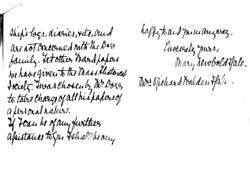 Ship's logs, diaries, etc, and
are not concerned with the Dow
family. Yet other Ward papers
we have given to the Mass Historical
Society. I was chosen by Mr. Dows
to take charge of all his papers of
a personal nature.
If I can be of any further
assistance to you I shall be only
happy and jours anyway.
Sincerely yours,
Mary Newbold Hale.
Mrs Richard Walden Hale.